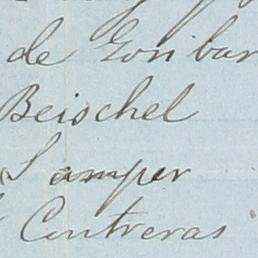 de Goribar
Beischel
Samper
Contreras